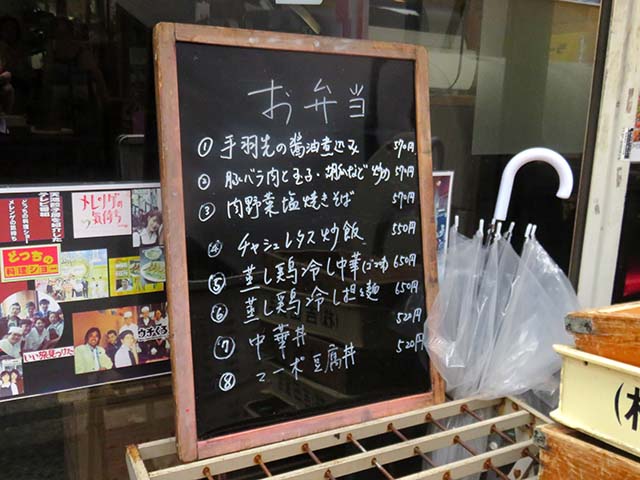 お弁当
① 手羽先の醤油煮込み 570円
② 豚バラ肉と玉子・胡瓜など炒め 570円
③ 肉野菜塩焼きそば 570円
④ チャシューレタス炒飯 550円
⑤ 蒸し鶏冷し中華 650円
⑥ 蒸し鶏冷し担々麺 650円
⑦ 中華丼 520円
⑧ マーボ豆腐丼 520円
メレンゲの気持ち
どっちの料理ショー